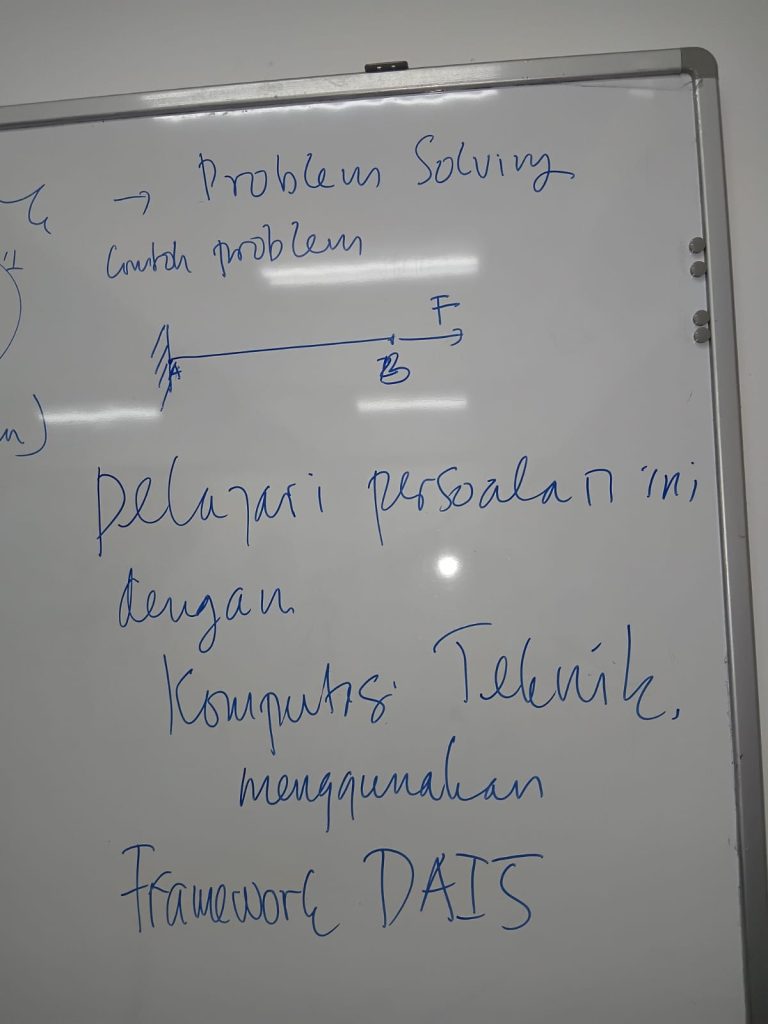 → Problem Solving
Contoh problem
F
A
B
Pelajari persoalan ini
dengan
Komputasi Teknik,
menggunakan
Framework DAI5